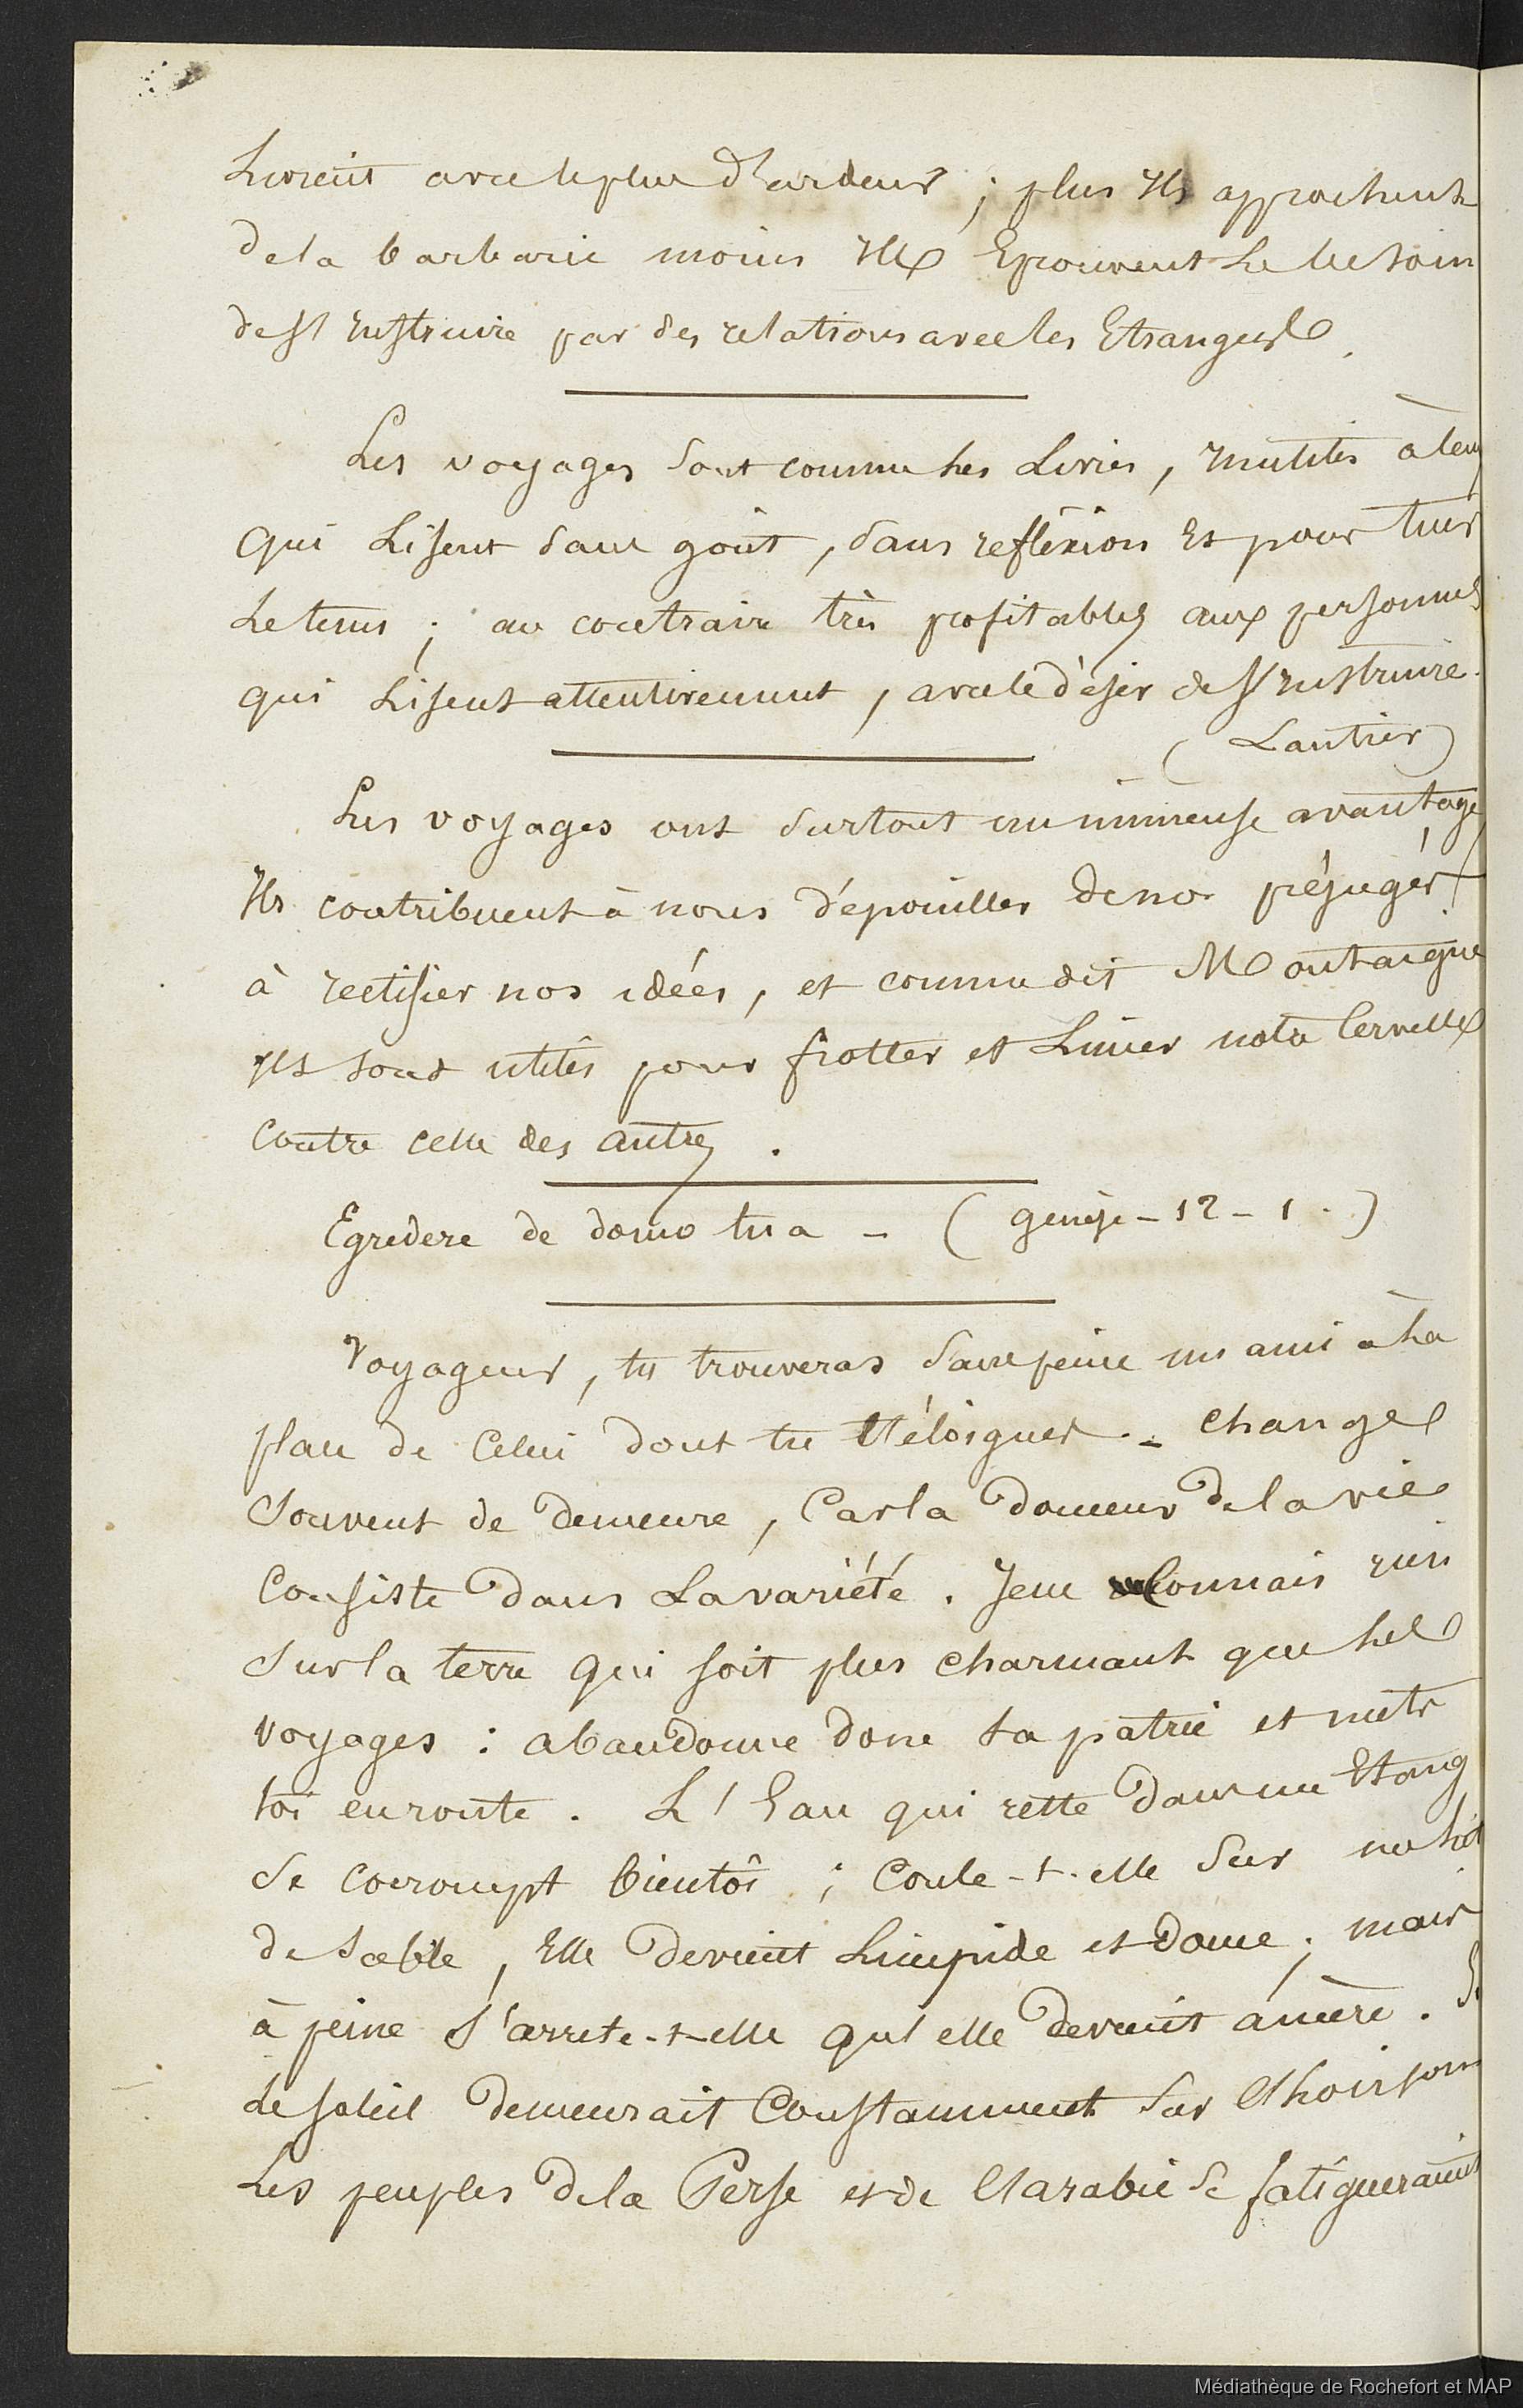 Livrent avec le plus d'ardeur ; plus ils approchent
de la barbarie moins ils Eprouvent Le besoin
de s'instruire par des relations avec les Etrangers.
Les voyages sont comme les Livres, inutiles à ceux
qui Lisent sans goût, sans refléxion Et pour tuer
Le tems ; au contraire très profitables aux personnes
qui Lisent attentivement, avec le désir de s'instruire.
(Lantier)
Les voyages ont surtout un immense avantage
Ils contribuent à nous dépouiller de nos préjugés
à rectifier nos idées, et comme dit Montaigne
ils sont utiles pour frotter et Limer notre Cervelle
Contre celle des autres.
Egredere de domo tua - (genèse - 12 - 1.)
Voyageur, tu trouveras sans peine un ami à La
place de Celui dont tu t'éloignes. - change
souvent de demeure, Car la douceur de la vie
Consiste dans La variété. Je ne Connais rien
sur la terre qui soit plus charmant que Les
voyages : abandonne donc ta patrie et mets
toi en route. L'Eau qui reste dans un Etang
se corrompt bientôt ; Coule-t-elle sur un lit
de sable, Elle devient Limpide et douce ; mais
à peine s'arrete-t-elle qu'elle devient amère. Si
Le soleil demeurait Constamment sur l'horison
Les peuples de la Perse et de l'arabie se fatigueraient
Médiathèque de Rochefort et MAP